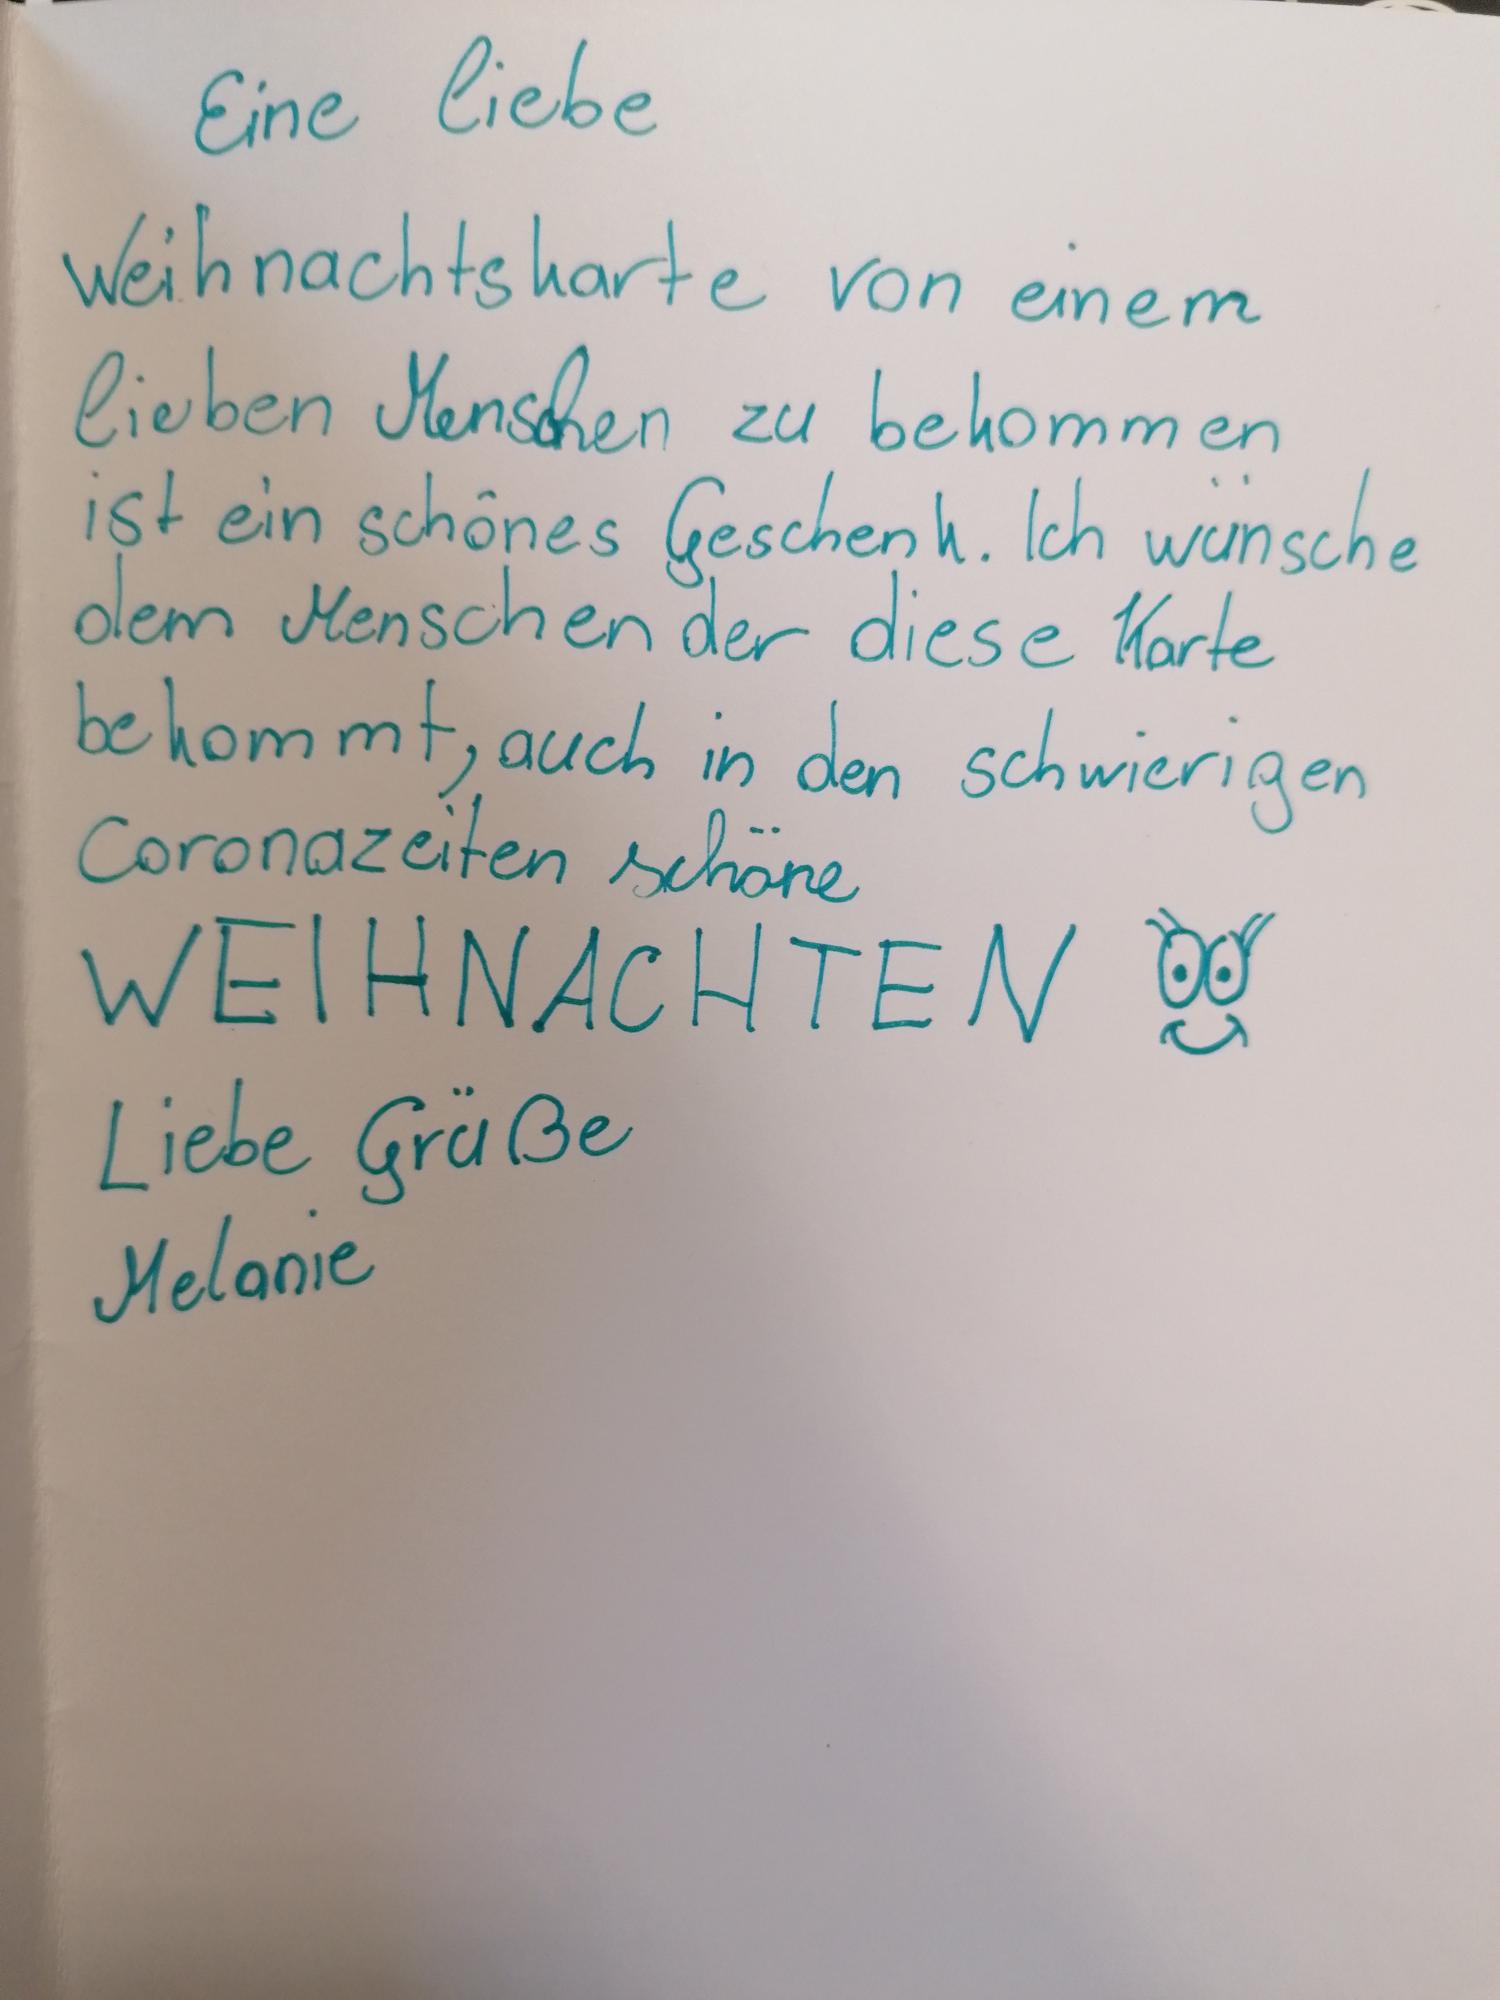 Eine liebe
Weihnachtskarte von einem
lieben Menschen zu bekommen
ist ein schönes Geschenk. Ich wünsche
dem Menschen der diese Karte
bekommt, auch in den schwierigen
Coronazeiten schöne
WEIHNACHTEN
Liebe Grüße
Melanie